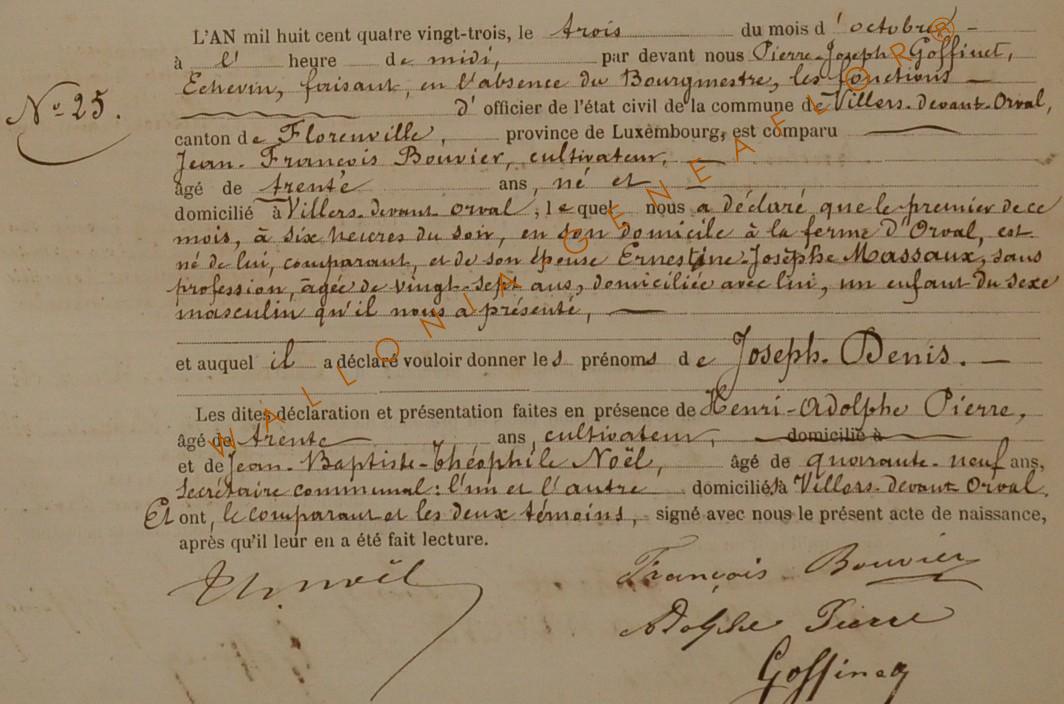 L'AN mil huit cent quatre vingt-trois, le trois du mois d'octobre -
à l' heure de midi, par devant nous Pierre-Joseph Goffinet,
Echevin, faisant, en l'absence du Bourgmestre, les fonctions -
d'officier de l'état civil de la commune de Villers-devant-Orval,
N° 25.
canton de Florenville, province de Luxembourg, est comparu
Jean-François Bouvier, cultivateur,
âgé de trente ans, né et
domicilié à Villers-devant orval, lequel nous a déclaré que le premier de ce
mois, à six heures du soir, en son domicile à la ferme d'Orval, est
né de lui, comparant, et de son épouse Ernestine-Josèphe Massaux, sans
profession, âgée de vingt-sept ans, domiciliée avec lui, un enfant du sexe
masculin qu'il nous a présenté, -
et auquel il a déclaré vouloir donner les prénoms de Joseph-Denis. -
Les dites déclaration et présentation faites en présence de Henri-Adolphe Pierre,
âgé de trente ans, cultivateur, domicilié à
et de Jean-Baptiste-Théophile Noël, âgé de quarante-neuf ans,
secrétaire communal: l'un et l'autre domiciliés à Villers-devant Orval.
Et ont, le comparant et les deux témoins, signé avec nous le présent acte de naissance,
après qu'il leur en a été fait lecture.
Th. Noël
François Bouvier
Adolphe Pierre
Goffinet
WALLONIA GENEALOR®